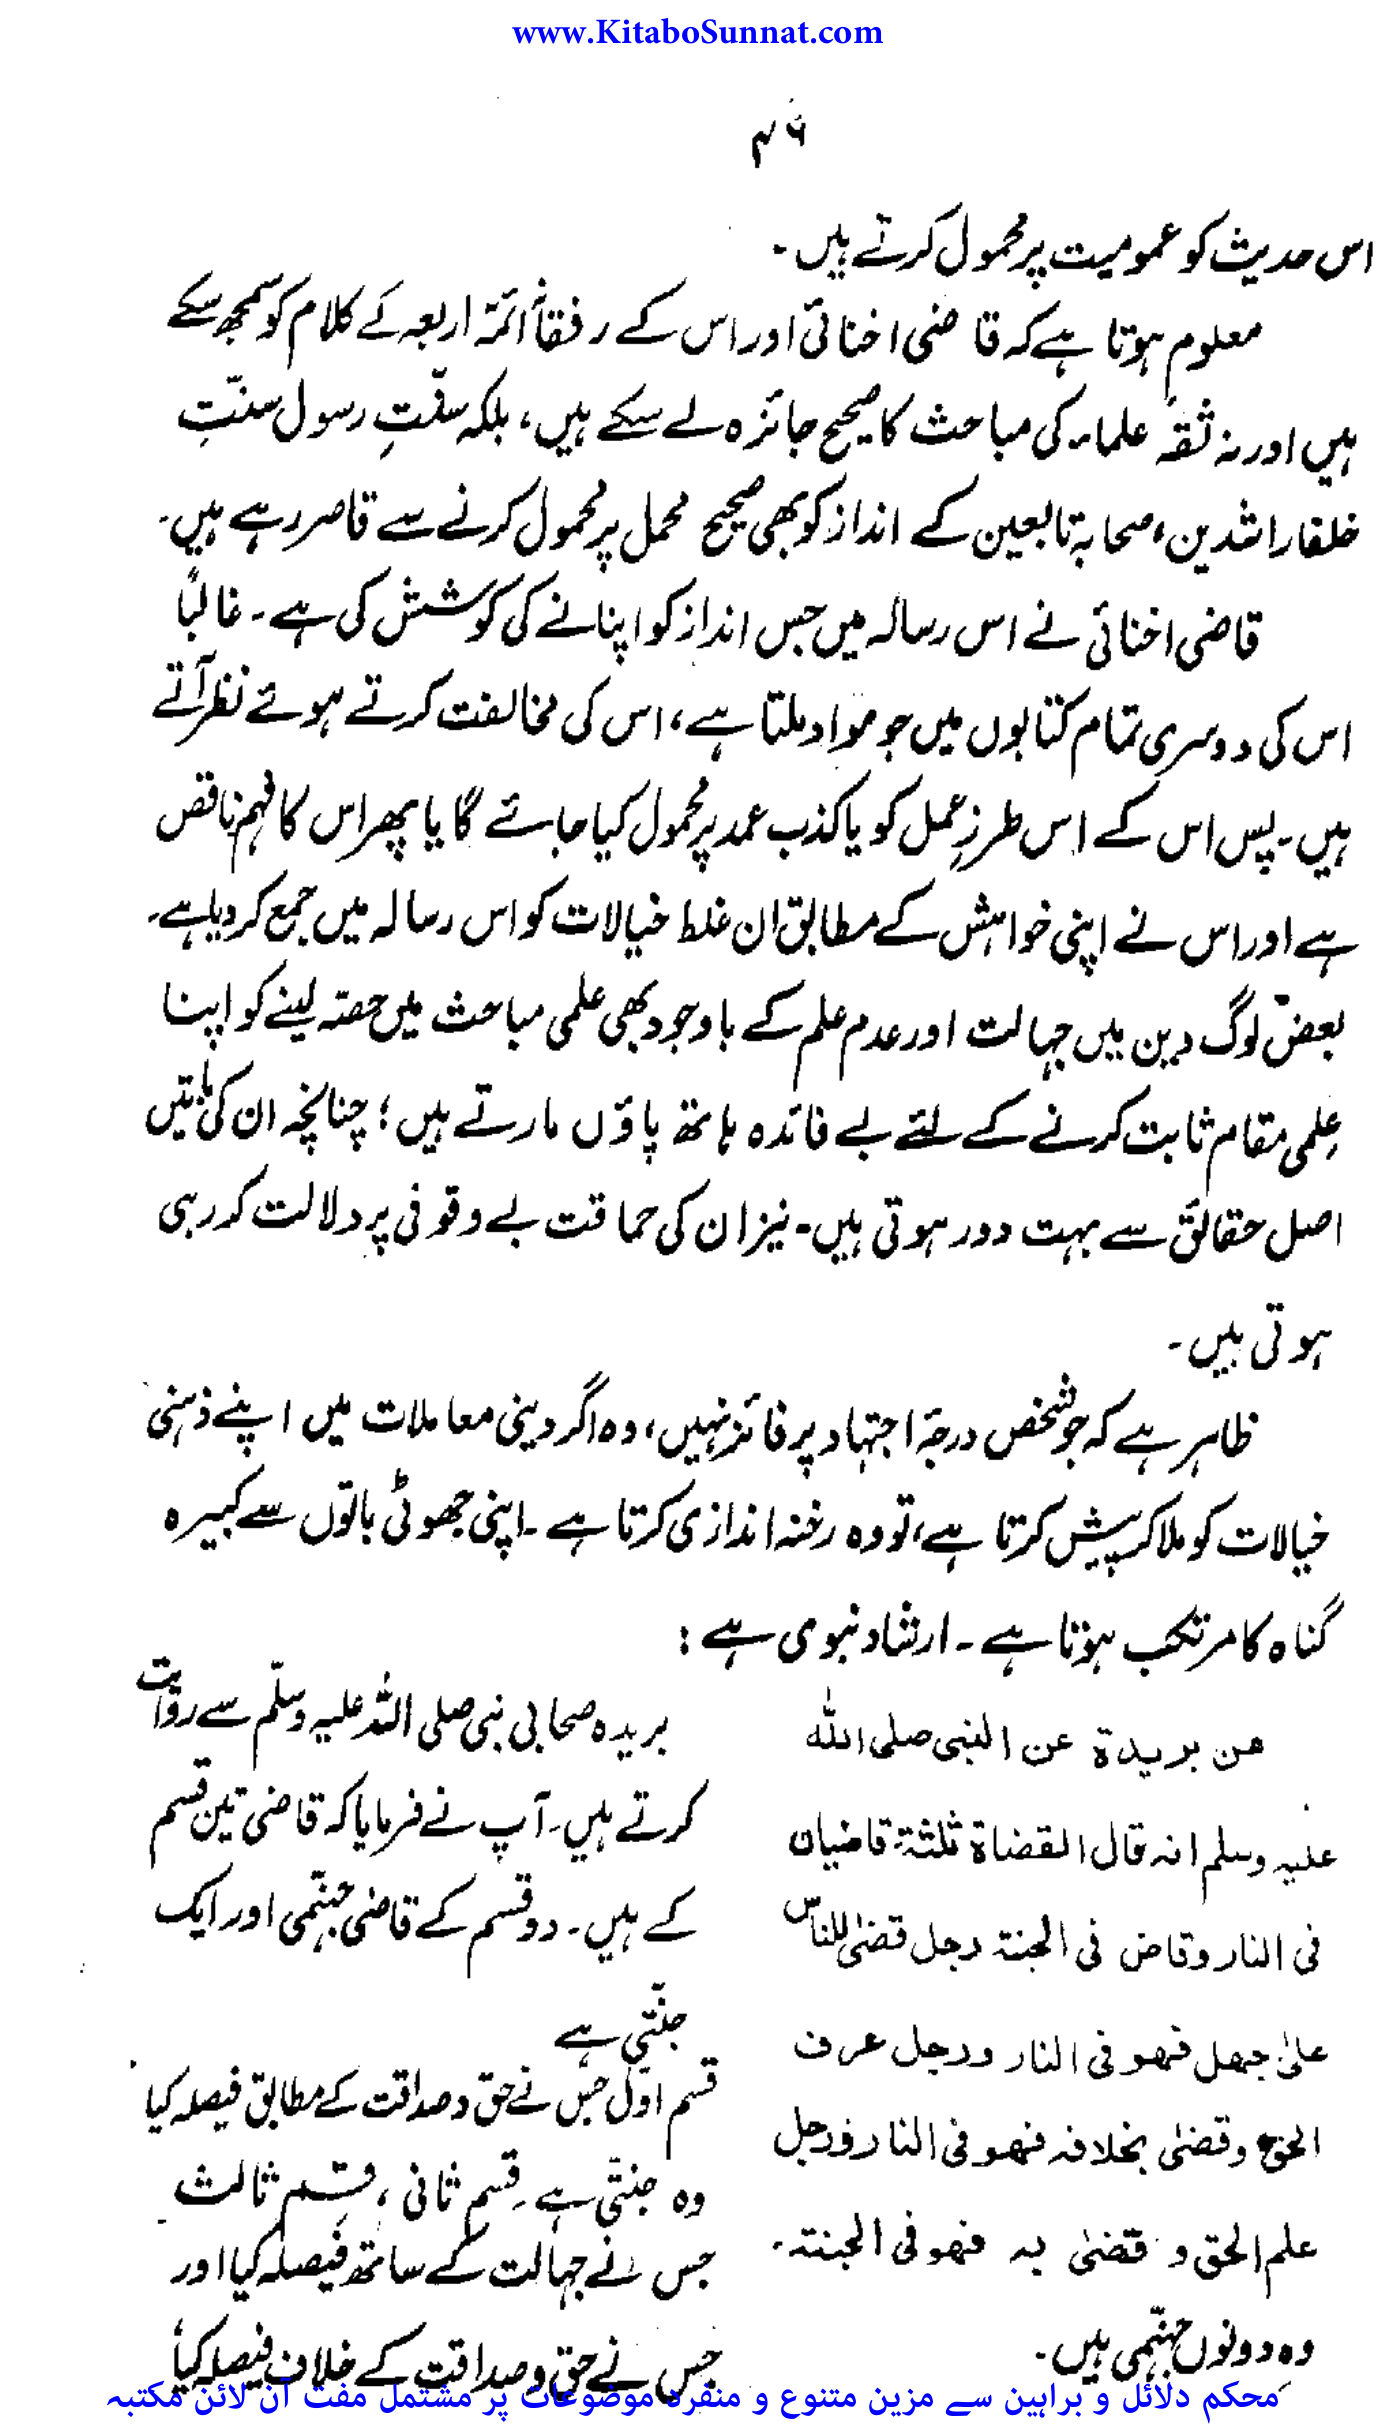 www.KitaboSunnat.com
۴۶
اس حدیث کو عمومیت پر محمول کرتے ہیں۔
معلوم ہوتا ہے کہ قاضی اخنائی اور اس کے رفقأ ائمہ اربعہ کے کلام کو سمجھ سکے
ہیں اور نہ ثقہ علماء کی مباحث کا صحیح جائزہ لے سکے ہیں، بلکہ سنّتِ رسول سنّتِ
خلفاء راشدین، صحابہ تابعین کے انداز کو بھی صحیح محمل پر محمول کرنے سے قاصر رہے ہیں۔
قاضی اخنائی نے اس رسالہ میں جس انداز کو اپنانے کی کوشش کی ہے۔ غالبًا
اس کی دوسری تمام کتابوں میں جو مواد ملتا ہے، اس کی مخالفت کرتے ہوئے نظر آتے
ہیں۔ پس اس کے اس طرزِ عمل کو یا کذب عمد پر محمول کیا جائے گا یا پھر اس کا فہم ناقص
ہے اور اس نے اپنی خواہش کے مطابق ان غلط خیالات کو اس رسالہ میں جمع کر دیا ہے۔
بعض لوگ دین میں جہالت اور عدم علم کے باوجود بھی علمی مباحث میں حصّہ لینے کو اپنا
عِلمی مقام ثابت کرنے کے لئے بے فائدہ ہاتھ پاؤں مارتے ہیں؛ چنانچہ ان کی باتیں
اصل حقائق سے بہت دور ہوتی ہیں۔ نیز ان کی حماقت بے وقوفی پر دلالت کر رہی
ہوتی ہیں۔
ظاہر ہے کہ جو شخص درجۂ اجتہاد پر فائز نہیں، وہ اگر دینی معاملات میں اپنے ذہنی
خیالات کو ملا کر پیش کرتا ہے، تو وہ رخنہ اندازی کرتا ہے۔ اپنی جھوٹی باتوں سے کبیرہ
گناہ کا مرتکب ہوتا ہے۔ ارشاد نبوی ہے:
عن بریدة عن النبی صلی اللہ
علیہ وسلم انہ قال القضاة ثلثة قاضیان
فی النار وقاض فی الجنة رجل قضیٰ للناس
علیٰ جھل فھو فی النار ورجل عرف
الحق وقضیٰ بخلافہ فھو فی النار ورجل
علم الحق و قضیٰ بہ فھو فی الجنة۔
بریدہ صحابی نبی صلی اللہ علیہ وسلّم سے روایت
کرتے ہیں۔ آپ نے فرمایا کہ قاضی تین قسم
کے ہیں۔ دو قسم کے قاضی جہنّمی اور ایک
جنّتی ہے
قسم اوّل جس نے حق و صداقت کے مطابق فیصلہ کیا
وہ جنتّی ہے۔ قسم ثانی، قسم ثالث
جس نے جہالت کے ساتھ فیصلہ کیا اور
جس نے حق و صداقت کے خلاف فیصلہ کیا
وہ دونوں جہنّمی ہیں۔
محکم دلائل و براہین سے مزین متنوع و منفرد موضوعات پر مشتمل مفت آن لائن مکتبہ